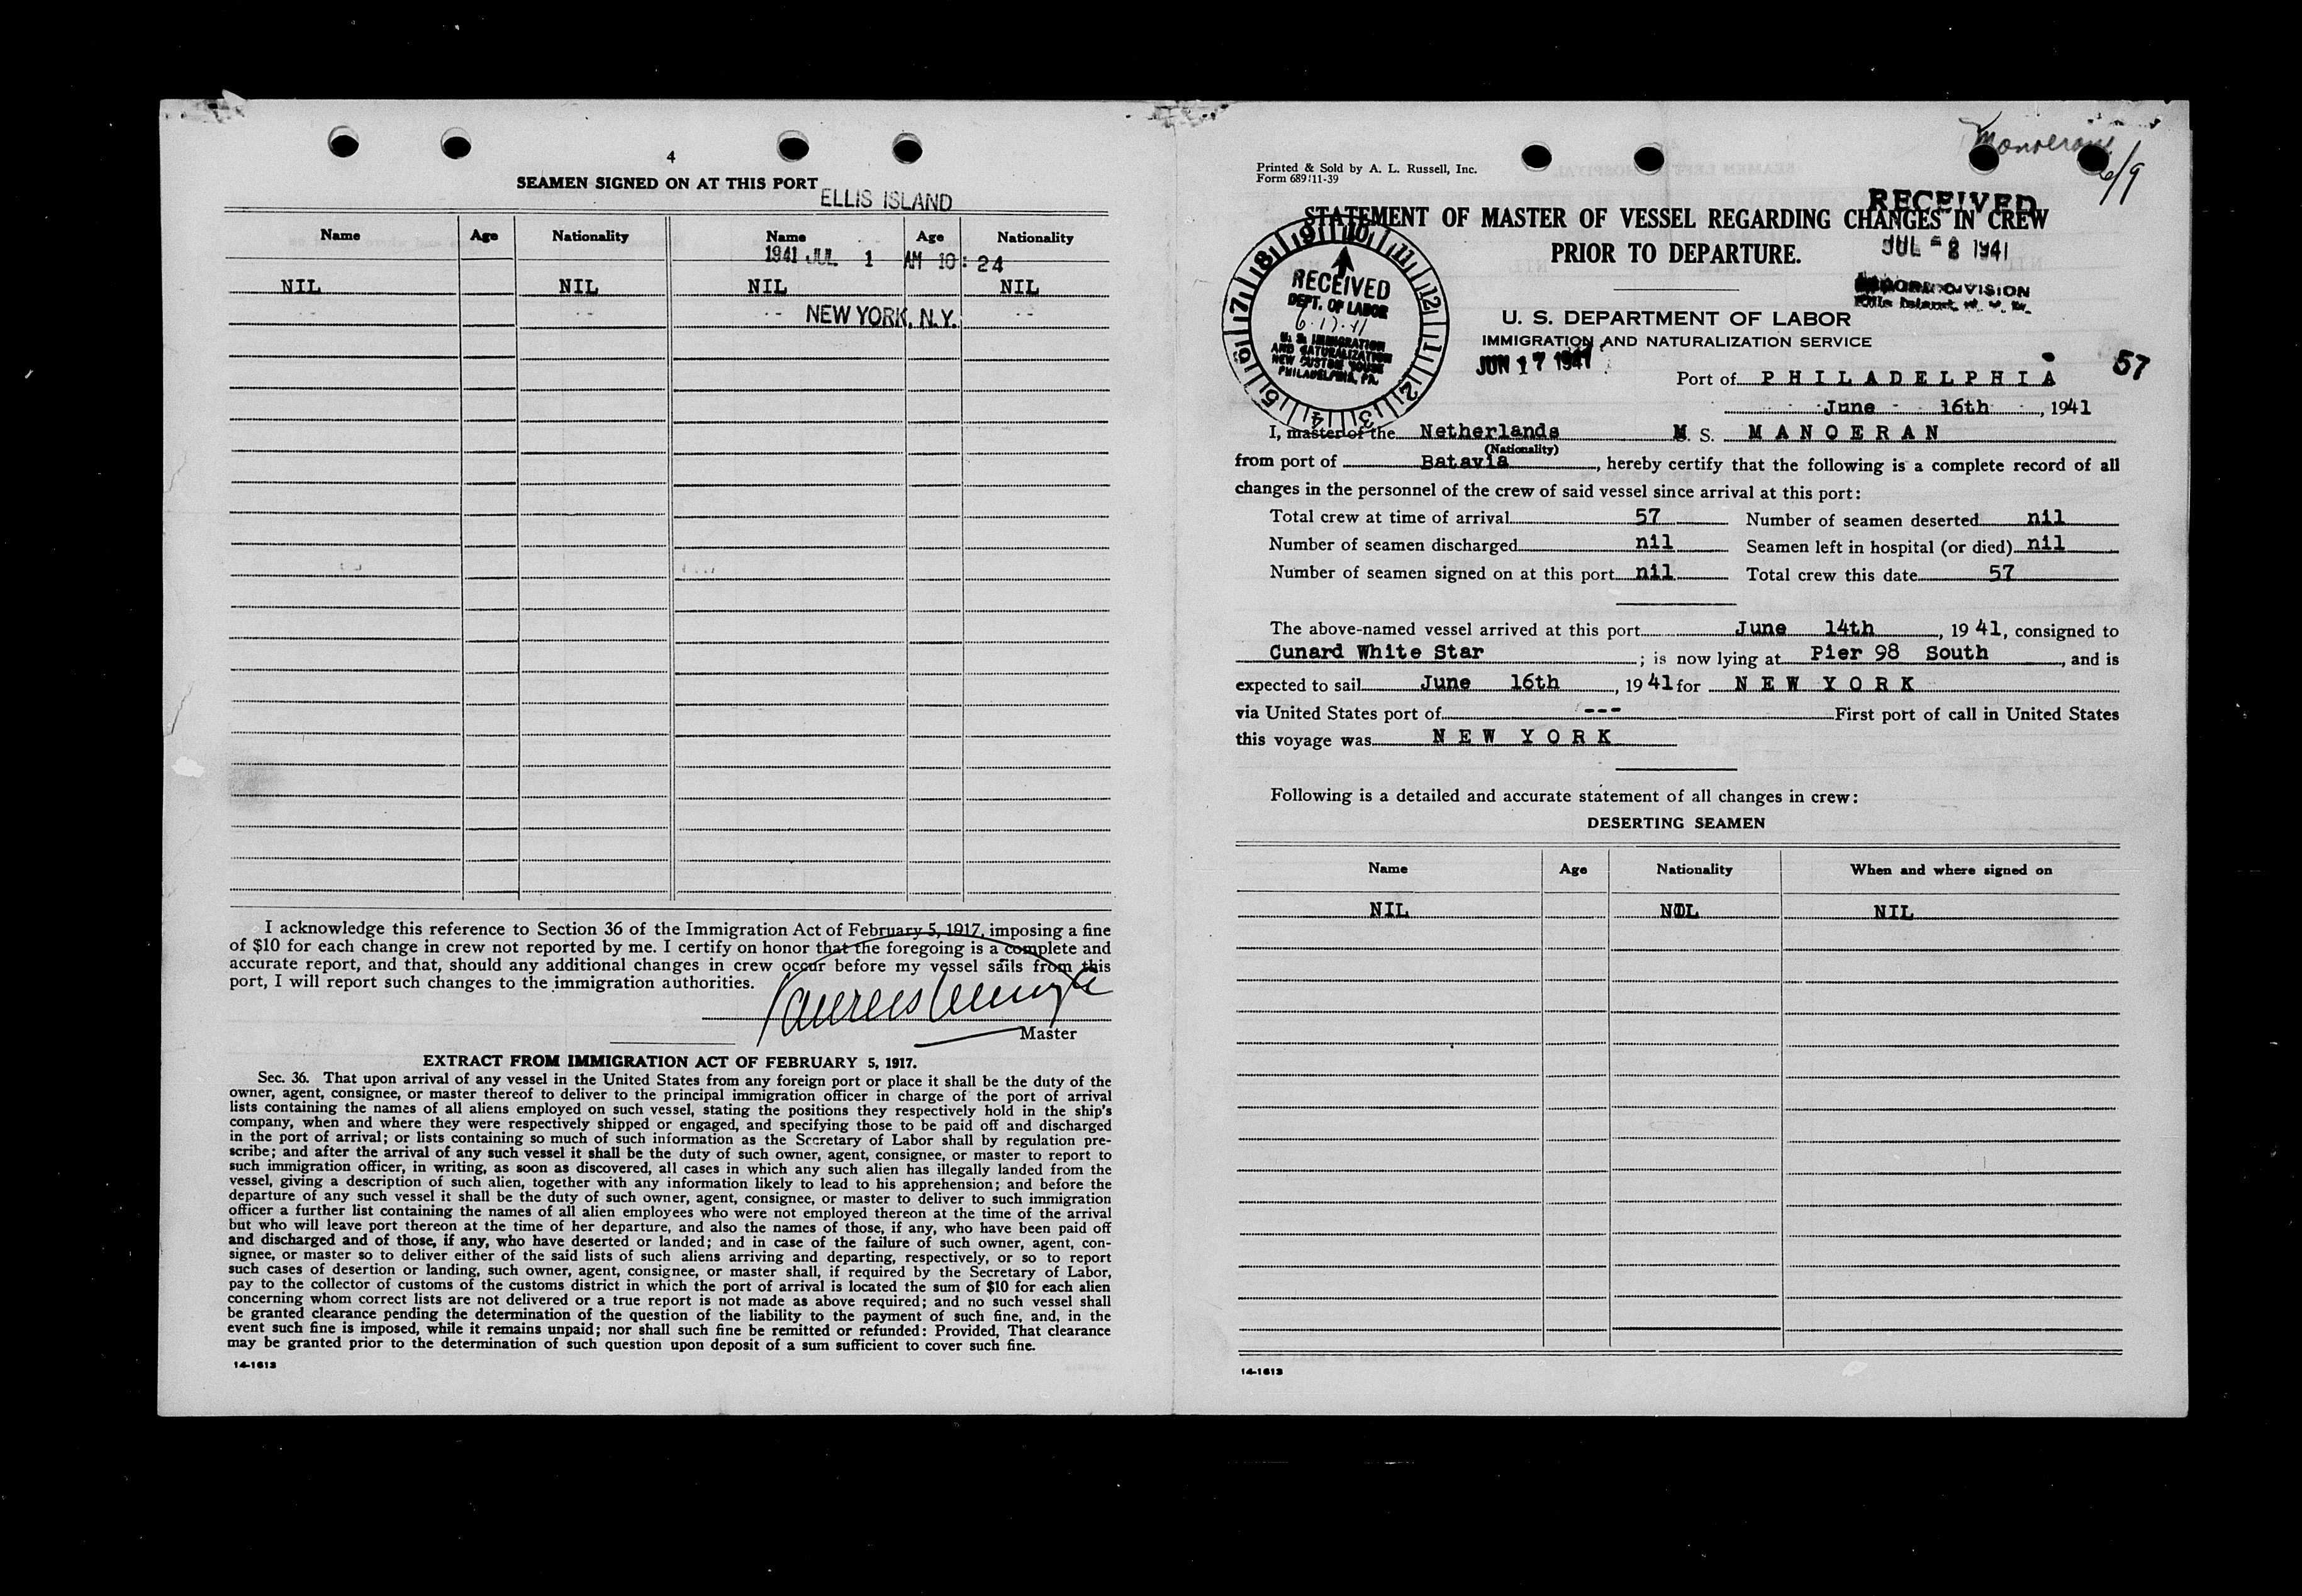 4
SEAMEN SIGNED ON AT THIS PORT
ELLIS ISLAND
Name Age Nationality Name Age Nationality
1941 JUL 1 AM 10:24
NIL NIL NIL NIL
NEW YORK, N.Y.
I acknowledge this reference to Section 36 of the Immigration Act of February 5, 1917, imposing a fine
of $10 for each change in crew not reported by me. I certify on honor that the foregoing is a complete and
accurate report, and that, should any additional changes in crew occur before my vessel sails from this
port, I will report such changes to the immigration authorities.
Master
EXTRACT FROM IMMIGRATION ACT OF FEBRUARY 5, 1917.
Sec. 36. That upon arrival of any vessel in the United States from any foreign port or place it shall be the duty of the
owner, agent, consignee, or master thereof to deliver to the principal immigration officer in charge of the port of arrival
lists containing the names of all aliens employed on such vessel, stating the positions they respectively hold in the ship's
company, when and where they were respectively shipped or engaged, and specifying those to be paid off and discharged
in the port of arrival; or lists containing so much of such information as the Secretary of Labor shall by regulation pre-
scribe; and after the arrival of any such vessel it shall be the duty of such owner, agent, consignee, or master to report to
such immigration officer, in writing, as soon as discovered, all cases in which any such alien has illegally landed from the
vessel, giving a description of such alien, together with any information likely to lead to his apprehension; and before the
departure of any such vessel it shall be the duty of such owner, agent, consignee, or master to deliver to such immigration
officer a further list containing the names of all alien employees who were not employed thereon at the time of the arrival
but who will leave port thereon at the time of her departure, and also the names of those, if any, who have been paid off
and discharged and of those, if any, who have deserted or landed; and in case of the failure of such owner, agent, con-
signee, or master so to deliver either of the said lists of such aliens arriving and departing, respectively, or so to report
such cases of desertion or landing, such owner, agent, consignee, or master shall, if required by the Secretary of Labor,
pay to the collector of customs of the customs district in which the port of arrival is located the sum of $10 for each alien
concerning whom correct lists are not delivered or a true report is not made as above required; and no such vessel shall
be granted clearance pending the determination of the question of the liability to the payment of such fine, and, in the
event such fine is imposed, while it remains unpaid; nor shall such fine be remitted or refunded: Provided, That clearance
may be granted prior to the determination of such question upon deposit of a sum sufficient to cover such fine.
14-1613
Manoeran
6/9
Printed & Sold by A. L. Russell, Inc.
Form 689 11-39
RECEIVED
STATEMENT OF MASTER OF VESSEL REGARDING CHANGES IN CREW
PRIOR TO DEPARTURE.
JUL - 2 1941
RECORD DIVISION
Ellis Island, N. Y. H.
9 10 11 12 1 2 3 4 5 6 7 8
RECEIVED
DEPT. OF LABOR
6-17-41
U. S. IMMIGRATION
AND NATURALIZATION
NEW CUSTOM HOUSE
PHILADELPHIA, PA.
U. S. DEPARTMENT OF LABOR
IMMIGRATION AND NATURALIZATION SERVICE
JUN 17 1941
Port of PHILADELPHIA
57
June 16th, 1941
I, master of the Netherlands M. S. MANOERAN
(Nationality)
from port of Batavia, hereby certify that the following is a complete record of all
changes in the personnel of the crew of said vessel since arrival at this port:
Total crew at time of arrival 57 Number of seamen deserted nil
Number of seamen discharged nil Seamen left in hospital (or died) nil
Number of seamen signed on at this port nil Total crew this date 57
The above-named vessel arrived at this port June 14th, 1941, consigned to
Cunard White Star; is now lying at Pier 98 South, and is
expected to sail June 16th, 1941 for NEW YORK
via United States port of --- First port of call in United States
this voyage was NEW YORK
Following is a detailed and accurate statement of all changes in crew:
DESERTING SEAMEN
Name Age Nationality When and where signed on
NIL NIL NIL
14-1613